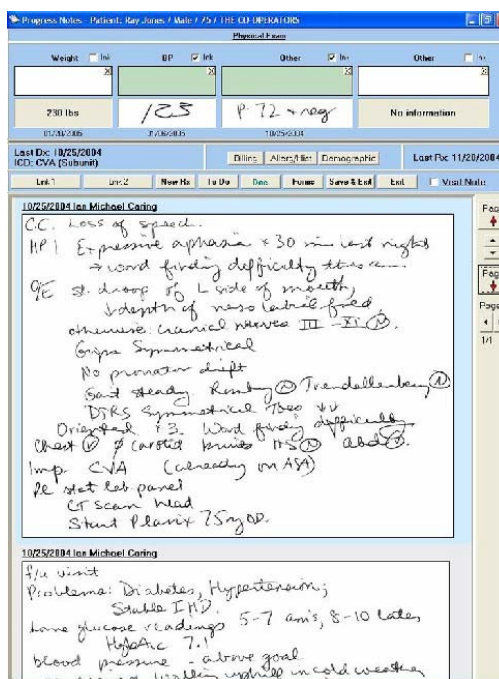 Progress Notes - Patient: Ray Jones / Male / 75 / THE CO-OPERATORS
Physical Exam
Weight Ink BP Ink Other Ink Other Ink
230 lbs /123 P-72 + reg No information
01/20/2005 01/06/2005 10/25/2004
Last Dx: 10/25/2004 Billing Allerg/Hist Demographic Last Rx: 11/20/2004
ICD: CVA (Subunit)
Link 1 Link 2 New Rx To Do Dna Forms Save & Exit Exit Void Note
10/25/2004 Ian Michael Caring
C.C. Loss of speech.
HPI Expressive aphasia x 30 min last night
→ word finding difficulty this a.m.
O/E st. droop of L side of mouth,
↓ depth of naso labial fold,
otherwise cranial nerves III - XI (N).
Grips Symmetrical
No pronator drift
Gait steady Romberg (N) Trendellenberg (N)
DTRS Symmetrical Toes ↓↓
Oriented x3. Word finding difficulty
Chest (N) ∅ carotid bruits HS (N) abd (N).
Imp. CVA (already on ASA)
Pl stat lab panel
CT Scan head
Start Plavix 75mg OD.
10/25/2004 Ian Michael Caring
f/u visit
Problems: Diabetes, Hypertension;
Stable IHD.
home glucose readings 5-7 am's, 8-10 later
HgbA1c 7.1
blood pressure - above goal
walking uphill in cold weather
Page
Page
Page
1/1